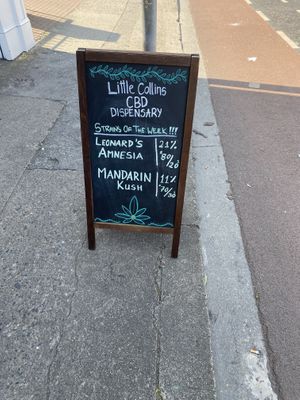 Little Collins
CBD
DISPENSARY
STRAINS OF THE WEEK!!!
LEONARD'S 21%
AMNESIA 80/20
MANDARIN 11%
KUSH 70/30